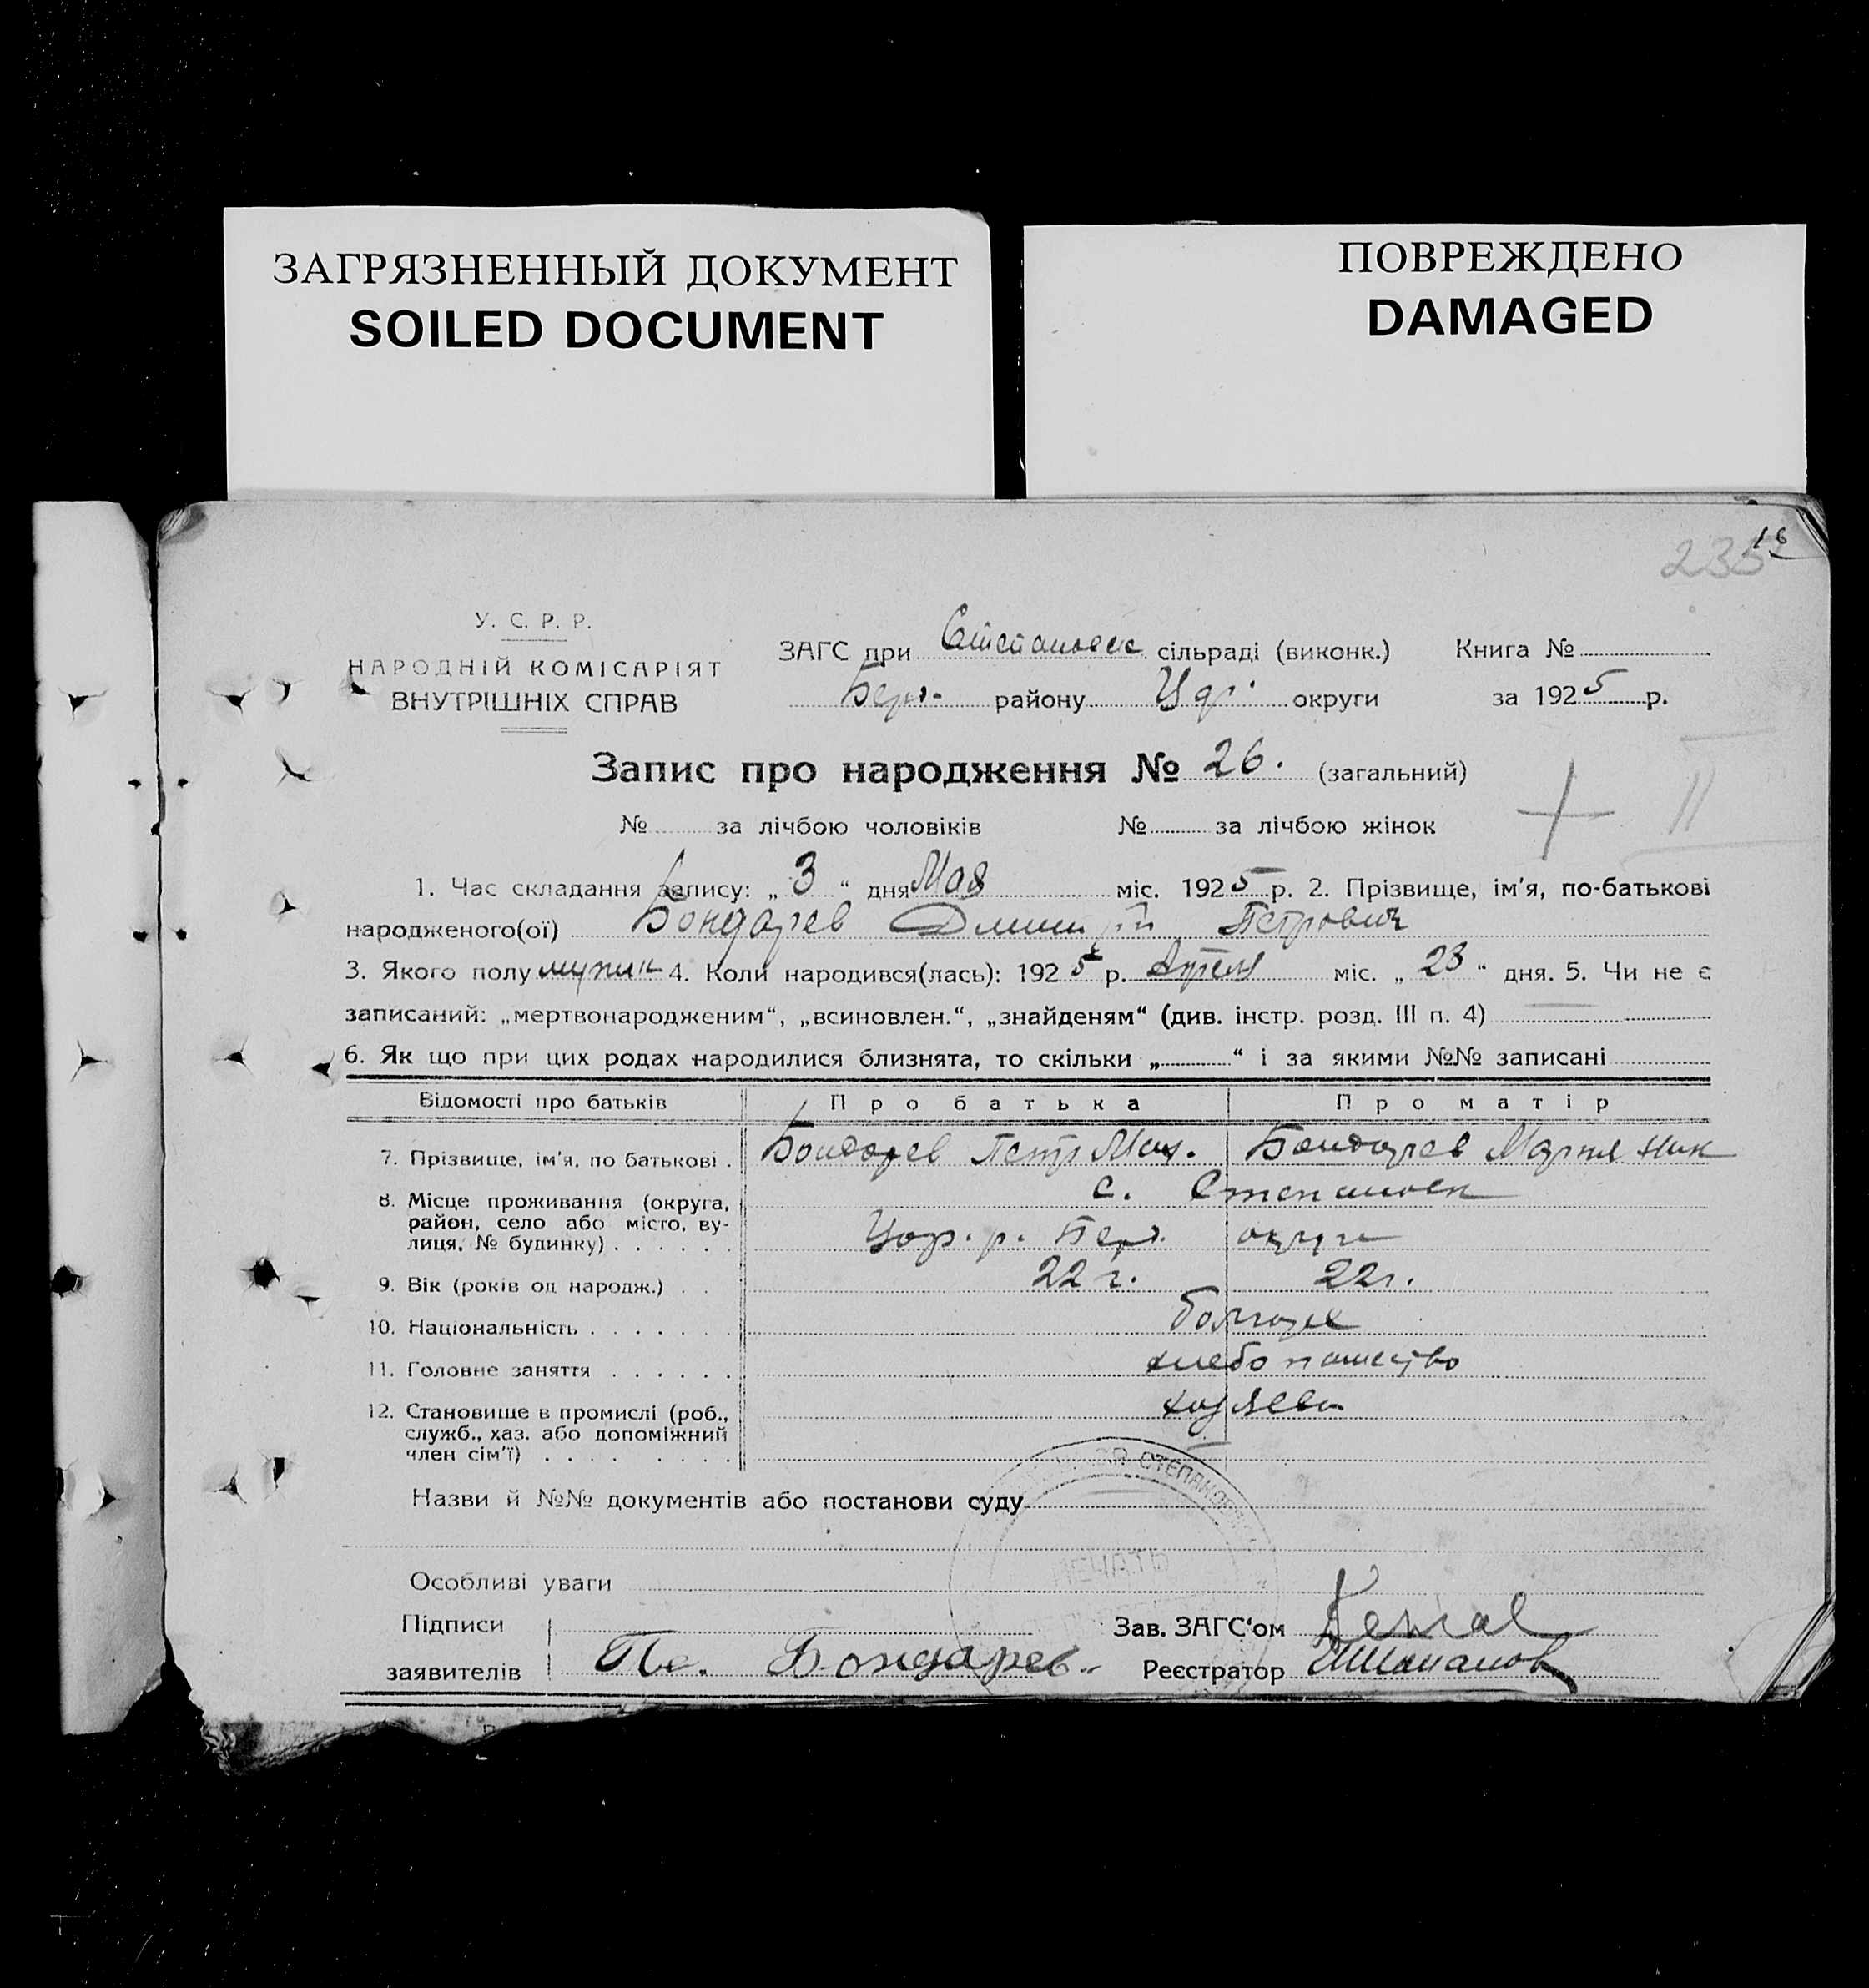 ЗАГРЯЗНЕННЫЙ ДОКУМЕНТ
SOILED DOCUMENT
ПОВРЕЖДЕНО
DAMAGED
235
16
У. С. Р. Р.
НАРОДНІЙ КОМІСАРІЯТ
ВНУТРІШНІХ СПРАВ
ЗАГС при сільраді (виконк.) Книга №
району округи за 1925 р.
Запис про народження № 26. (загальний)
№ за лічбою чоловіків № за лічбою жінок
1. Час складання запису: „3“ дня Мая міс. 1925 р. 2. Прізвище, ім'я, по-батькові
народженого(ої) Бондарев Дмитрий Петрович
3. Якого полу 4. Коли народився(лась): 1925 р. міс. „23“ дня. 5. Чи не є
записаний: „мертвонародженим“, „всиновлен.“, „знайденям“ (див. інстр. розд. III п. 4)
6. Як що при цих родах народилися близнята, то скільки „ “ і за якими №№ записані
Відомості про батьків Про батька Про матір
7. Прізвище, ім'я, по батькові . Бондарев Петр Бондарев Мария Ник
8. Місце проживання (округа, с.
район, село або місто, ву-
лиця, № будинку) . . . . . . округи
9. Вік (років од народж.) . . 22 г. 22 г.
10. Національність . . . . . . . болгаре
11. Головне заняття . . . . . . хлебопашество
12. Становище в промислі (роб., хозяева
служб., хаз. або допоміжний
член сім'ї) . . . . . . . .
Назви й №№ документів або постанови суду
ПЕЧАТЬ
Особливі уваги
Підписи Зав. ЗАГС'ом
заявителів Бондарев Реєстратор